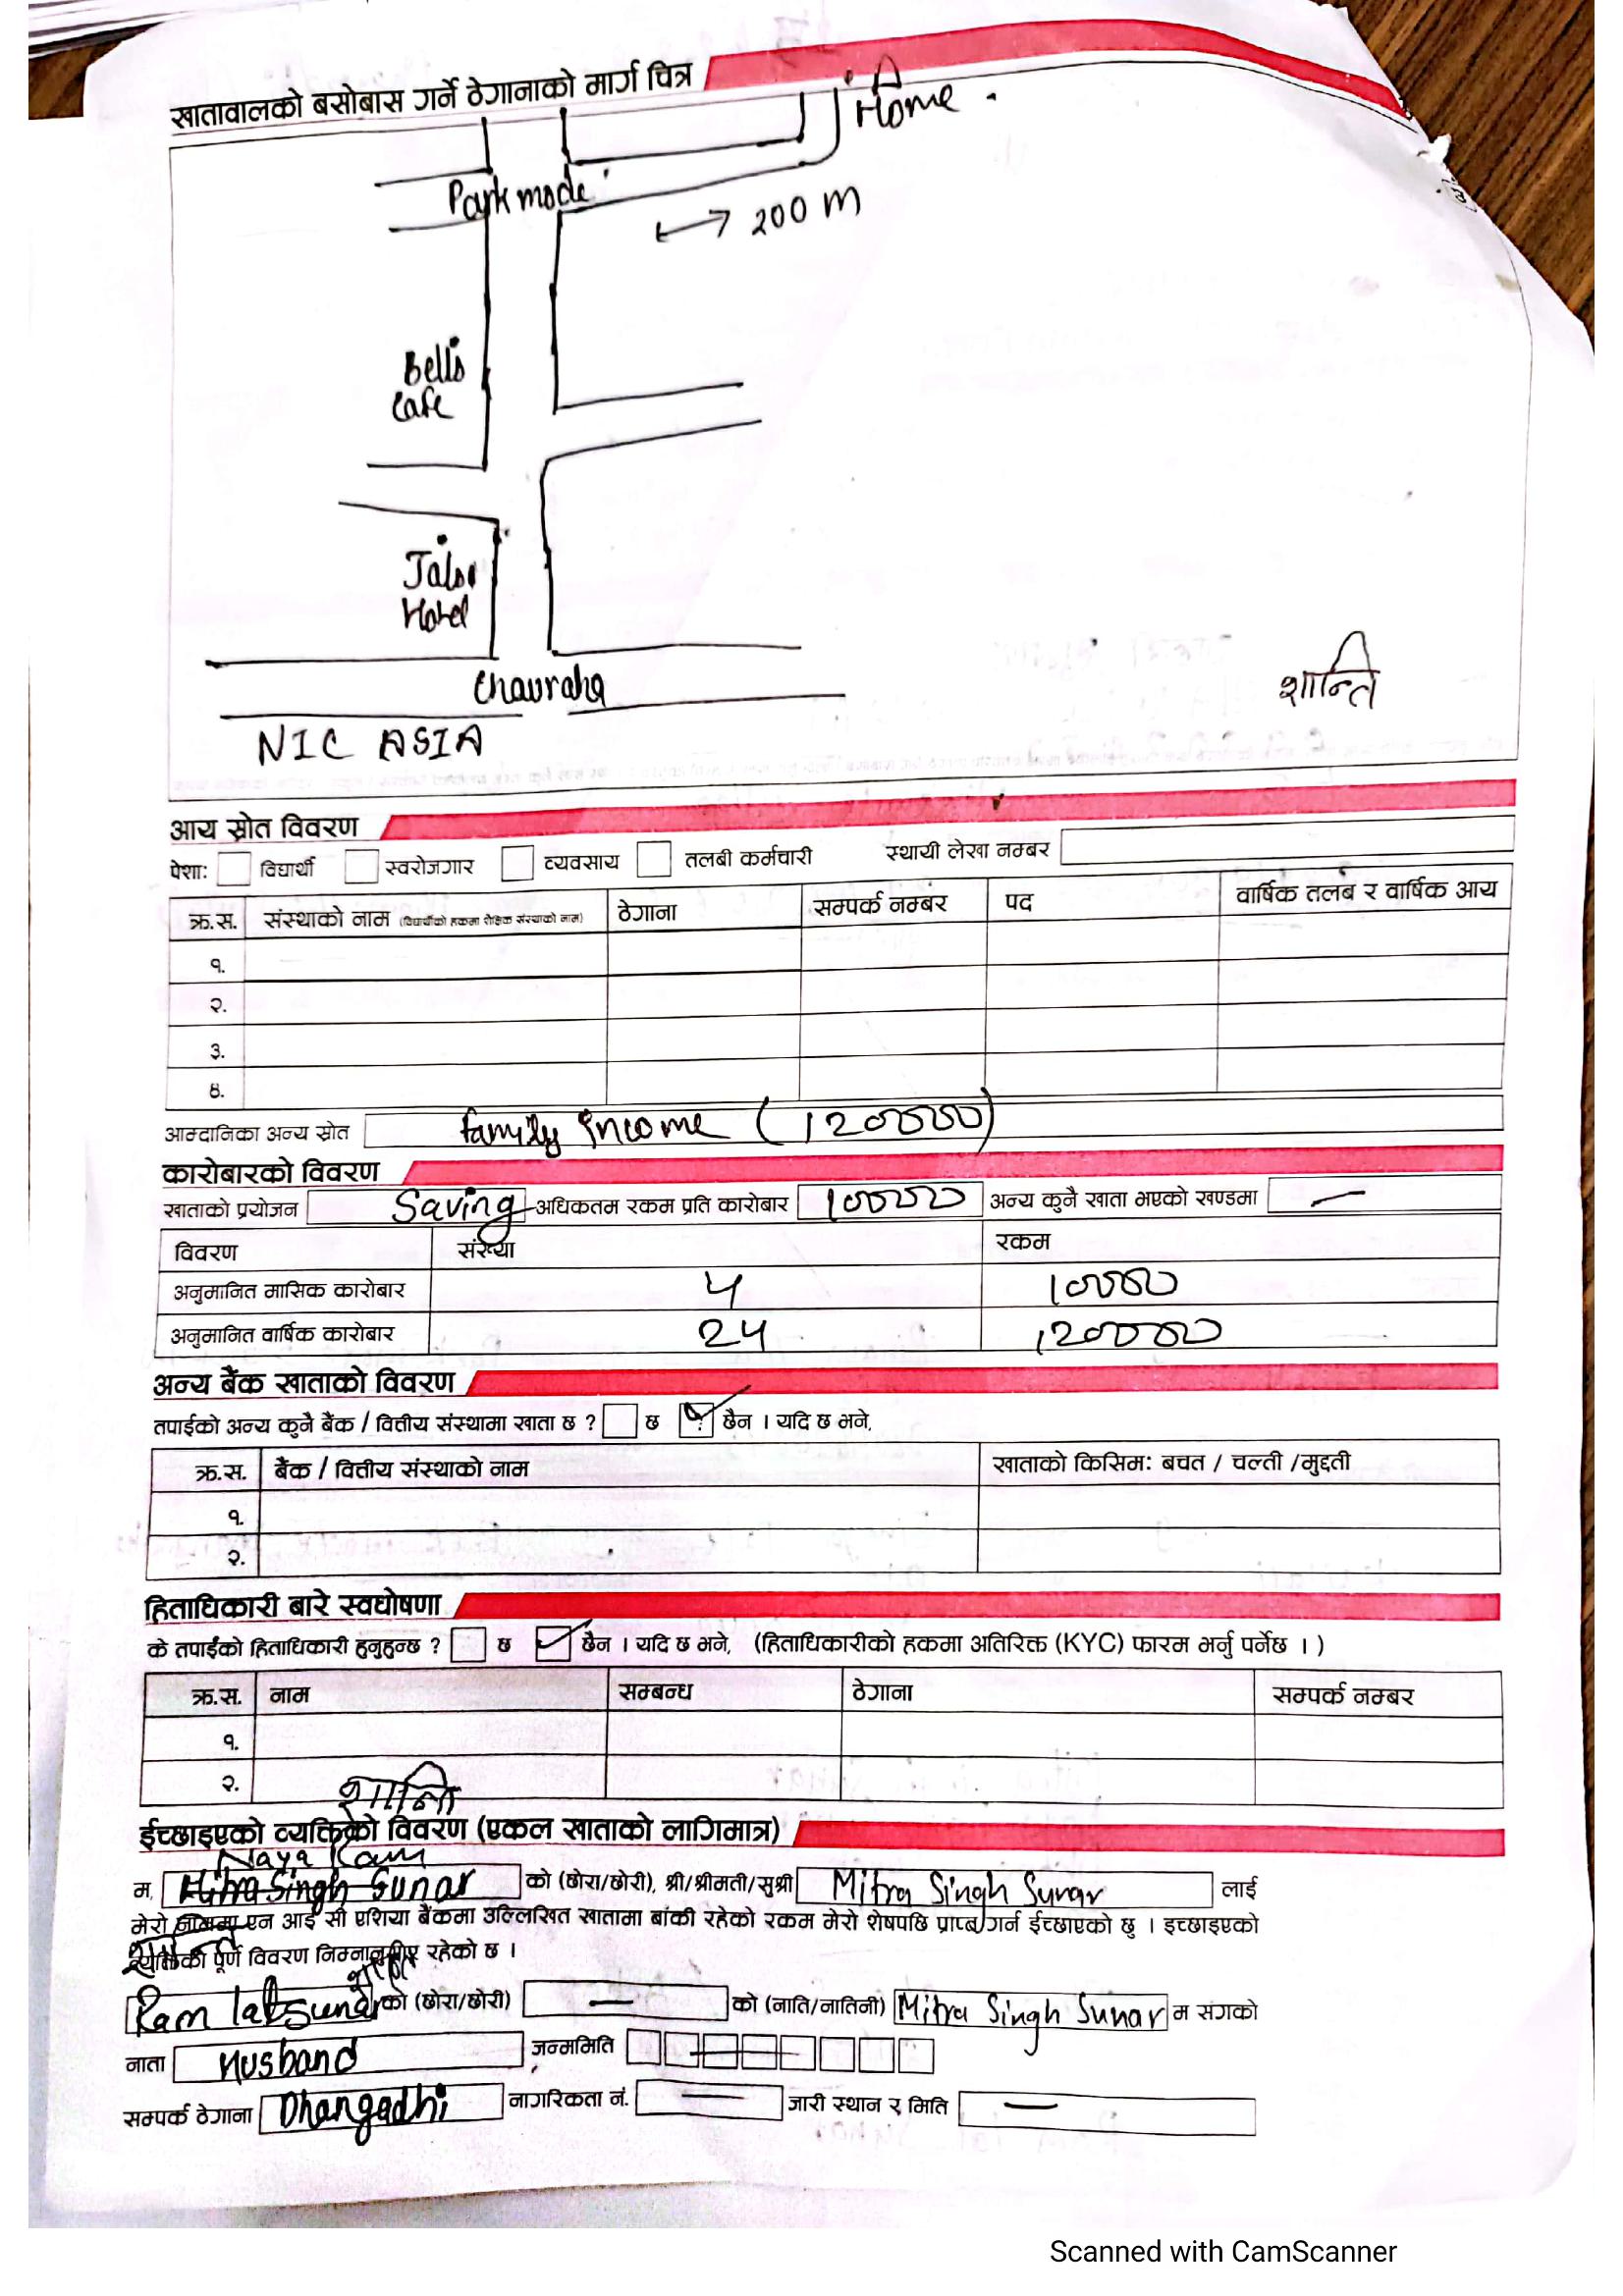 खातावालको बसोबास गर्ने ठेगानाको मार्ग चित्र
Home
Park mode
200 m
Bells
Cafe
Jalsa
Hotel
Chauraha
NIC ASIA
शान्ति
आय स्रोत विवरण
पेशा: विद्यार्थी स्वरोजगार व्यवसाय तलबी कर्मचारी स्थायी लेखा नम्बर
क्र.स. संस्थाको नाम (विद्यार्थीको हकमा शैक्षिक संस्थाको नाम) ठेगाना सम्पर्क नम्बर पद वार्षिक तलब र वार्षिक आय
१.
२.
३.
४.
आम्दानिका अन्य स्रोत family income (120000)
कारोबारको विवरण
खाताको प्रयोजन Saving अधिकतम रकम प्रति कारोबार 10000 अन्य कुनै खाता भएको खण्डमा —
विवरण संख्या रकम
अनुमानित मासिक कारोबार 4 10000
अनुमानित वार्षिक कारोबार 24 120000
अन्य बैंक खाताको विवरण
तपाईको अन्य कुनै बैंक / वित्तीय संस्थामा खाता छ ? छ छैन । यदि छ भने,
क्र.स. बैंक / वित्तीय संस्थाको नाम खाताको किसिम: बचत / चल्ती /मुद्दती
१.
२.
हिताधिकारी बारे स्वघोषणा
के तपाईंको हिताधिकारी हुनुहुन्छ ? छ छैन । यदि छ भने, (हिताधिकारीको हकमा अतिरिक्त (KYC) फारम भर्नु पर्नेछ । )
क्र.स. नाम सम्बन्ध ठेगाना सम्पर्क नम्बर
१.
२.
शान्ति
ईच्छाइएको व्यक्तिको विवरण (एकल खाताको लागिमात्र)
Naya Ram
म, Mitra Singh Sunar को (छोरा/छोरी), श्री/श्रीमती/सुश्री Mitra Singh Sunar लाई
मेरो नाममा एन आई सी एशिया बैंकमा उल्लिखित खातामा बांकी रहेको रकम मेरो शेषपछि प्राप्त गर्न ईच्छाएको छु । इच्छाइएको
शान्ति
व्यक्तिको पूर्ण विवरण निम्नानुसार रहेको छ ।
Ram lal Sunar को (छोरा/छोरी) — को (नाति/नातिनी) Mitra Singh Sunar म संगको
नाता Husband जन्ममिति
सम्पर्क ठेगाना Dhangadhi नागरिकता नं. — जारी स्थान र मिति —
Scanned with CamScanner